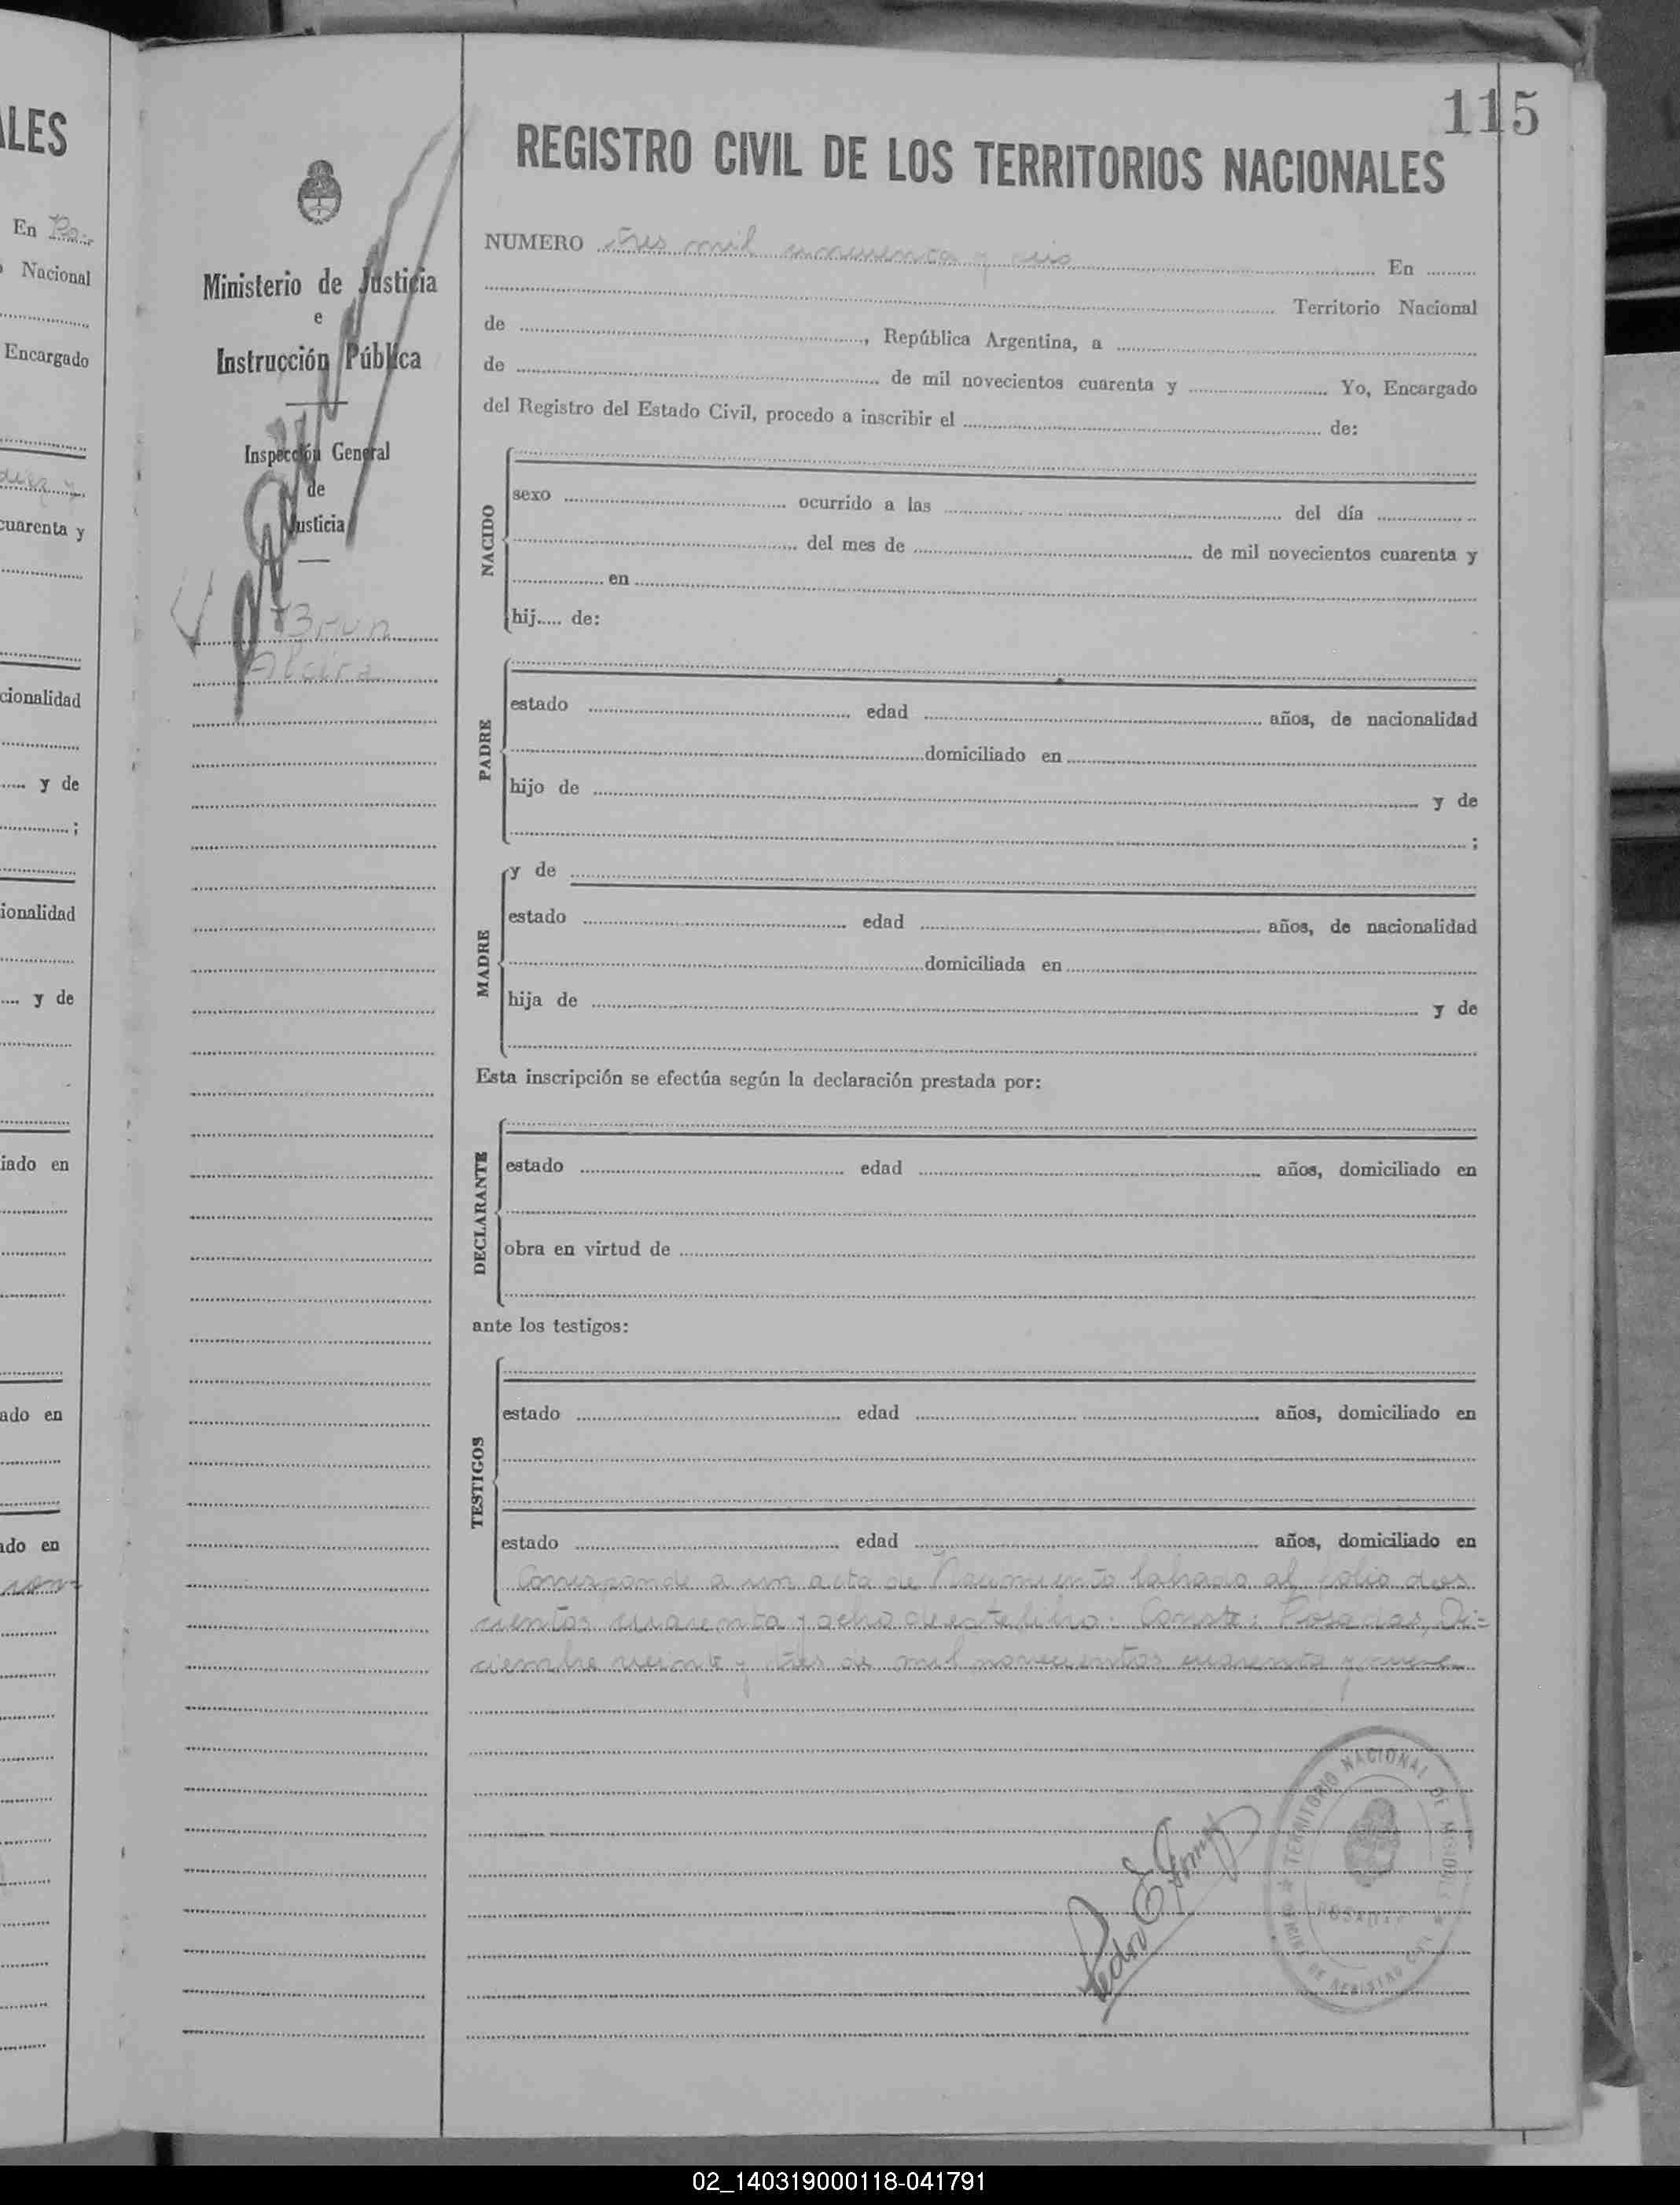 ALES
En Po-
o Nacional
Encargado
diez y
cuarenta y
cionalidad
y de
;
ionalidad
y de
iado en
ado en
ado en
115
Ministerio de Justicia
e
Instrucción Pública
Inspección General
de
Justicia
Brun
Alcira
REGISTRO CIVIL DE LOS TERRITORIOS NACIONALES
NUMERO tres mil cincuenta y seis En
Territorio Nacional
de , República Argentina, a
de de mil novecientos cuarenta y Yo, Encargado
del Registro del Estado Civil, procedo a inscribir el de:
NACIDO
sexo ocurrido a las del día
del mes de de mil novecientos cuarenta y
en
hij..... de:
PADRE
estado edad años, de nacionalidad
domiciliado en
hijo de y de
;
MADRE
y de
estado edad años, de nacionalidad
domiciliada en
hija de y de
Esta inscripción se efectúa según la declaración prestada por:
DECLARANTE
estado edad años, domiciliado en
obra en virtud de
ante los testigos:
TESTIGOS
estado edad años, domiciliado en
estado edad años, domiciliado en
Corresponde a un acta de Nacimiento labrada al folio dos
cientos cuarenta y ocho de este libro. Conste: Posadas, Di=
ciembre veinte y tres de mil novecientos cuarenta y nueve
Pedro E Gomez
TERRITORIO NACIONAL DE MISIONES
POSADAS
DE REGISTRO CIVIL
02_140319000118-041791